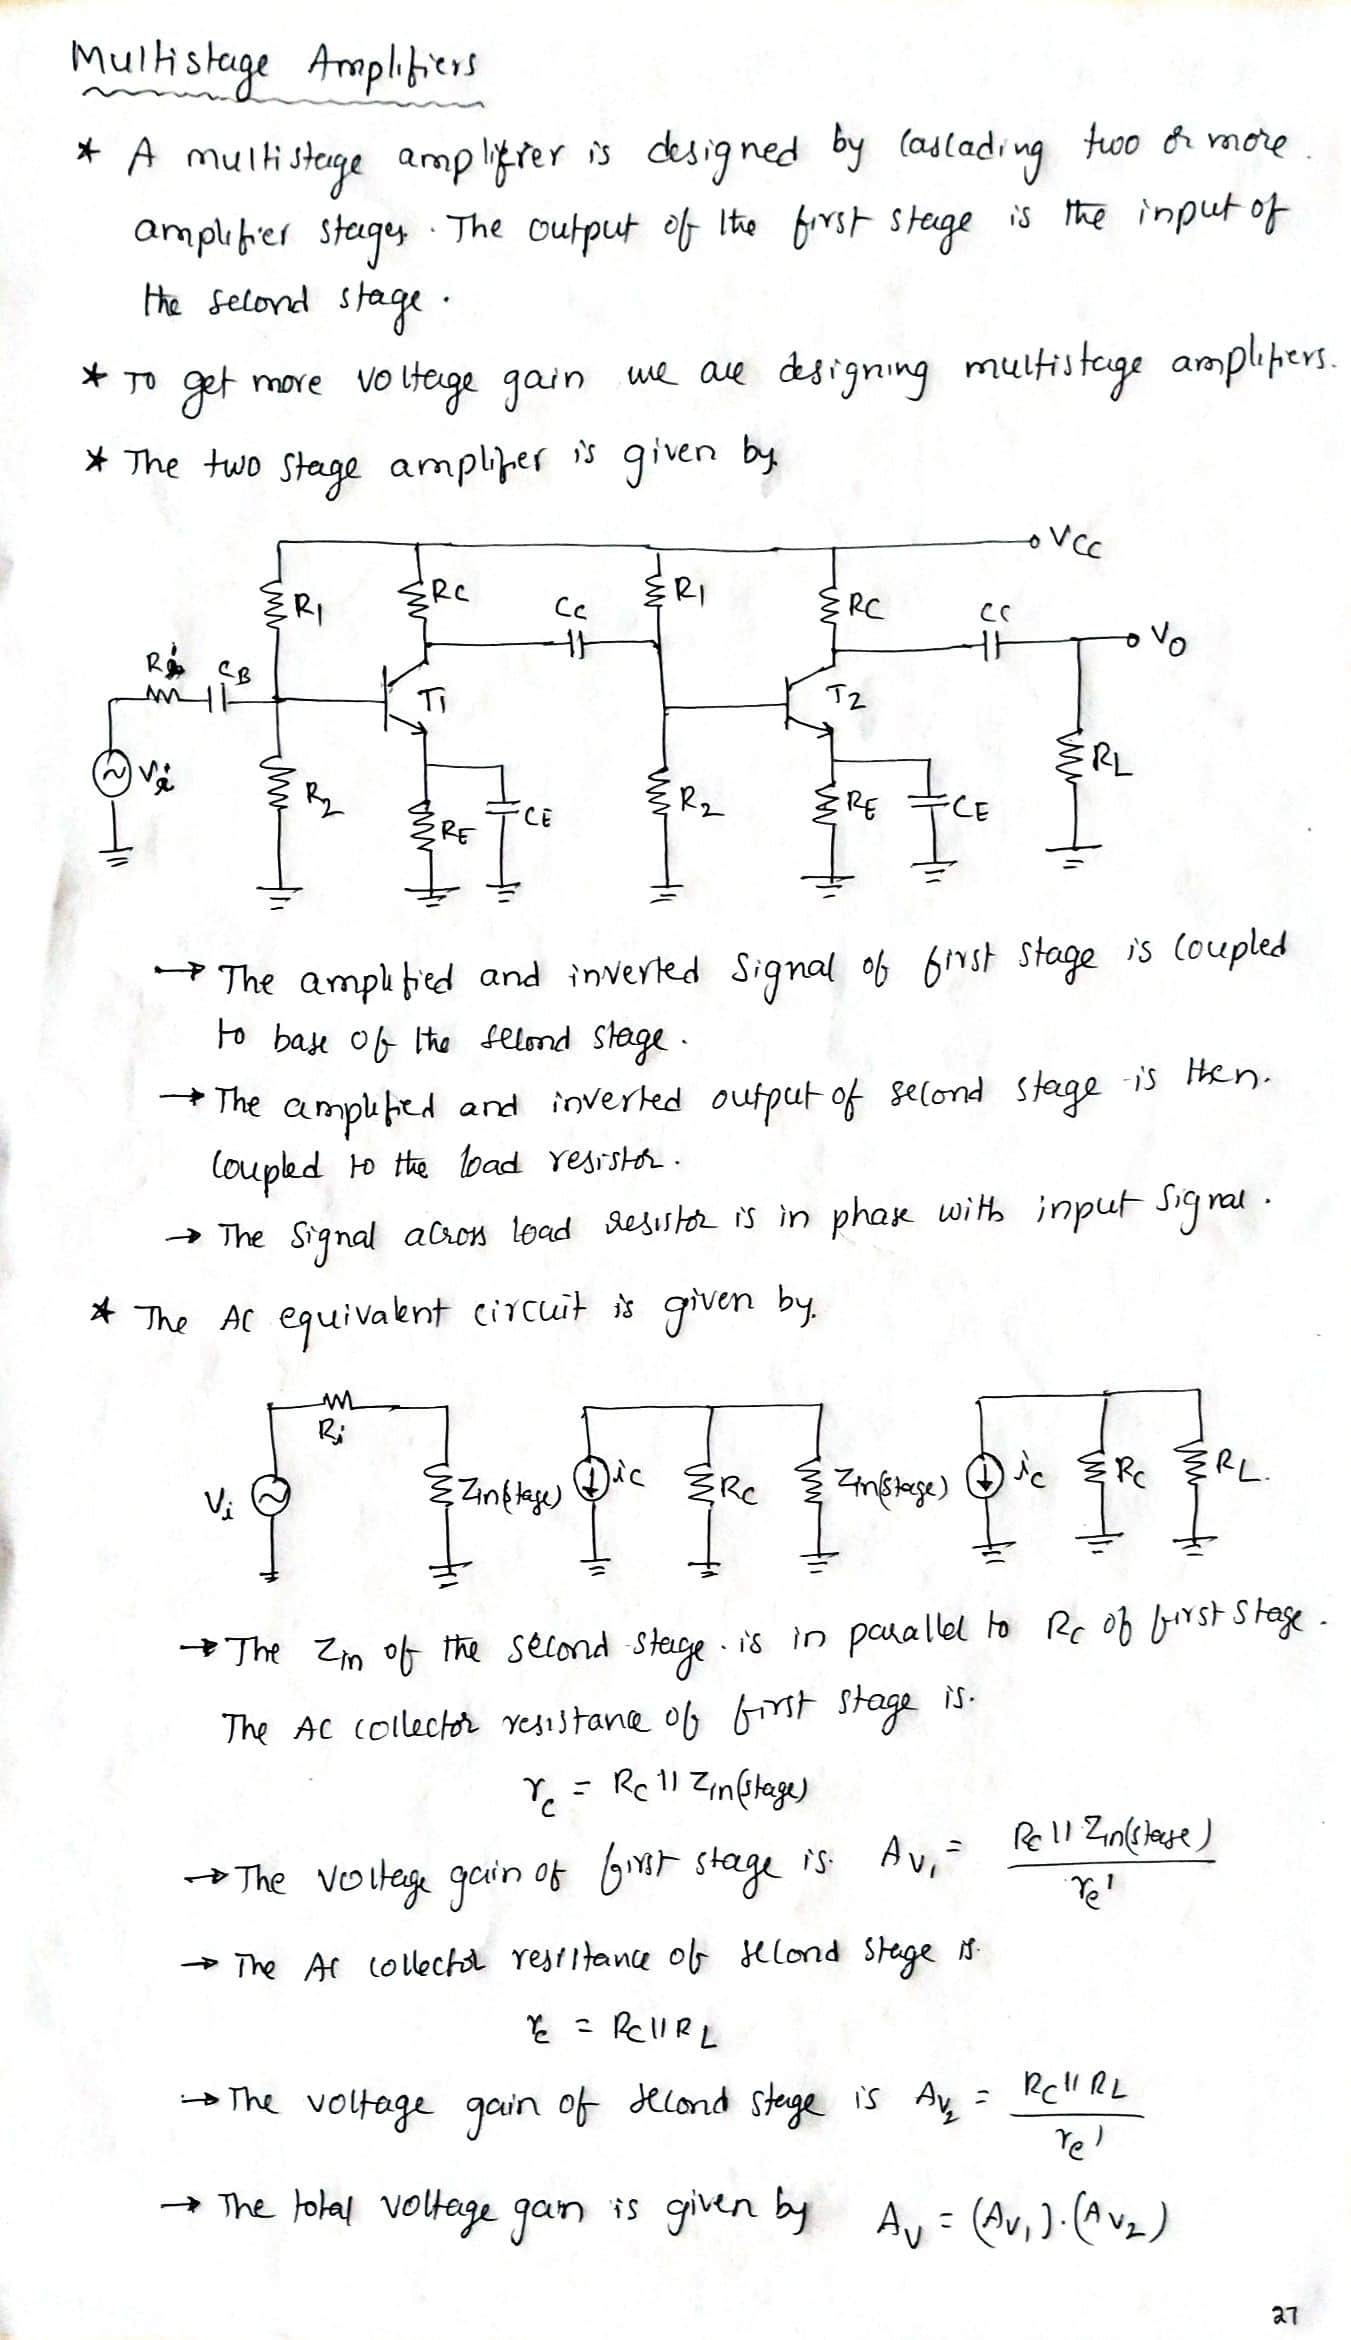 Multistage Amplifiers
* A multistage amplifier is designed by cascading two or more
amplifier stages. The output of the first stage is the input of
the second stage.
* To get more voltage gain we are designing multistage amplifiers.
* The two stage amplifier is given by.
VCC
R1 RC Cc R1 RC CC Vo
Ri CB T1 T2
Vi R2 RE CE R2 RE CE RL
→ The amplified and inverted signal of first stage is coupled
to base of the second stage.
→ The amplified and inverted output of second stage is then.
coupled to the load resistor.
→ The signal across load resistor is in phase with input signal.
* The AC equivalent circuit is given by.
Ri
Vi Zin(stage) ic RC Zin(stage) ic RC RL.
→ The Zin of the second stage. is in parallel to Rc of first stage.
The AC collector resistance of first stage is.
rc = Rc || Zin(stage)
→ The voltage gain of first stage is. Av1 = Rc || Zin(stage) / re'
→ The AC collector resistance of second stage is.
rc = Rc || RL
→ The voltage gain of second stage is Av2 = RC || RL / re'
→ The total voltage gain is given by Av = (Av1).(Av2)
27